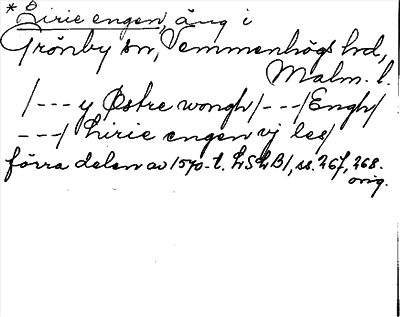 * Lirie engen, äng i
Grönby sn, Vemmenhögs hd,
Malm. l.
/--- y Østre wongh/---/Engh/
---/ Lirie engen vj les/
förra delen av 1570-t. LSLB1, ss. 267, 268.
orig.